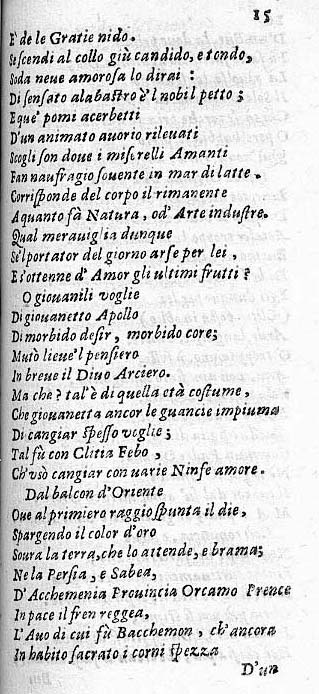 15
E' de le Gratie nido.
Se scendi al collo giù candido, e tondo,
Soda neue amorosa lo dirai :
Di sensato alabastro è'l nobil petto ;
E que' pomi acerbetti
D'un animato auorio rileuati
Scogli son doue i miserelli Amanti
Fan naufragio souente in mar di latte.
Corrisponde del corpo il rimanente
A quanto sà Natura, od' Arte industre.
Qual merauiglia dunque
Se'l portator del giorno arse per lei ,
E s'ottenne d'Amor gli ultimi frutti ?
O giouanili voglie
Di giouanetto Apollo
Di morbido desir, morbido core;
Mutò lieue'l pensiero
In breue il Diuo Arciero.
Ma che ? tal'è di quella età costume,
Che giouanetta ancor le guancie impiuma
Di cangiar spesso voglie ;
Tal fù con Clitia Febo ,
Ch'vsò cangiar con uarie Ninfe amore.
Dal balcon d'Oriente
Oue al primiero raggio spunta il die,
Spargendo il color d'oro
Soura la terra, che lo attende, e brama;
Ne la Persia , e Sabea,
D'Acchemenia Prouincia Orcamo Prence
In pace il fren reggea,
L'Auo di cui fù Bacchemon , ch'ancora
In habito sacrato i corni spezza
D'un